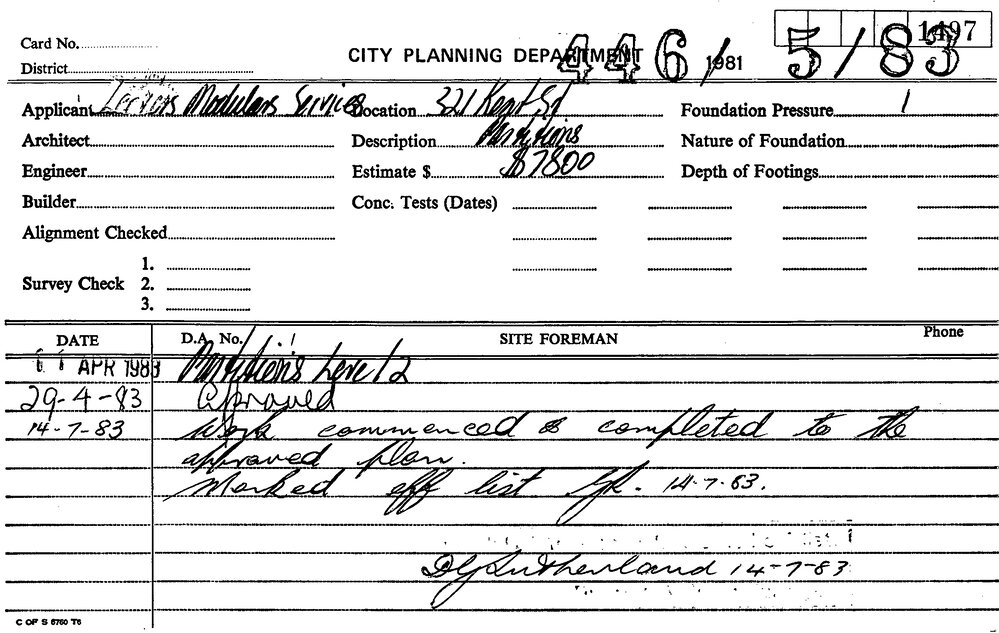 1497
Card No.
CITY PLANNING DEPARTMENT 446/ 1981 5/83
District
Applicant Modulars Services Location 321 Kent St Foundation Pressure
Architect Description Partitions Nature of Foundation
Engineer Estimate $ $7800 Depth of Footings
Builder Conc. Tests (Dates)
Alignment Checked
1.
Survey Check 2.
3.
DATE D.A. No. SITE FOREMAN Phone
11 APR 1983 Partitions Level 2
29-4-83 Aproved
14-7-83 Work commenced & completed to the
approved plan.
Marked off list 14.7.83.
DGSutherland 14-7-83
C OF S 6760 T6